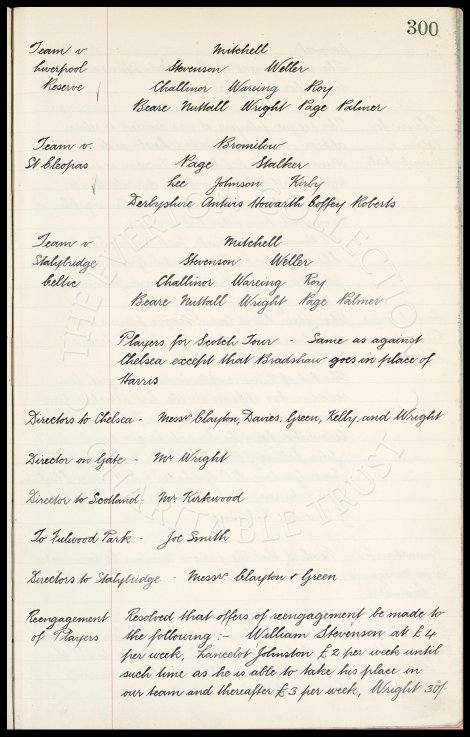 300
Team v. Mitchell
Liverpool Stevenson Weller
Reserve Challinor Wareing Roy
Beare Nuttall Wright Page Palmer
Team v. Bromilow
St Cleopas Page Stalker
Lee Johnson Kirby
Derbyshire Howarth Coffey Roberts
Team v Mitchell
Stalybridge Stevenson Weller
Celtic Challinor Wareing Roy
Beare Nuttall Wright Page Palmer
Players for Scotch Tour - Same as against
Chelsea except that Bradshaw goes in place of
Harris
Directors to Chelsea - Messrs Clayton, Davies, Green, Kelly, and Wright
Director on Gate - Mr Wright
Director to Scotland - Mr Kirkwood
To Fulwood Park - Joe Smith
Directors to Stalybridge - Messrs Clayton & Green
Reengagement Resolved that offers of reengagement be made to
of Players the following :- William Stevenson at £4
per week, Lancelot Johnston £2 per week until
such time as he is able to take his place in
our team and thereafter £3 per week, Wright 30/-
THE EVERTON COLLECTION
CHARITABLE TRUST